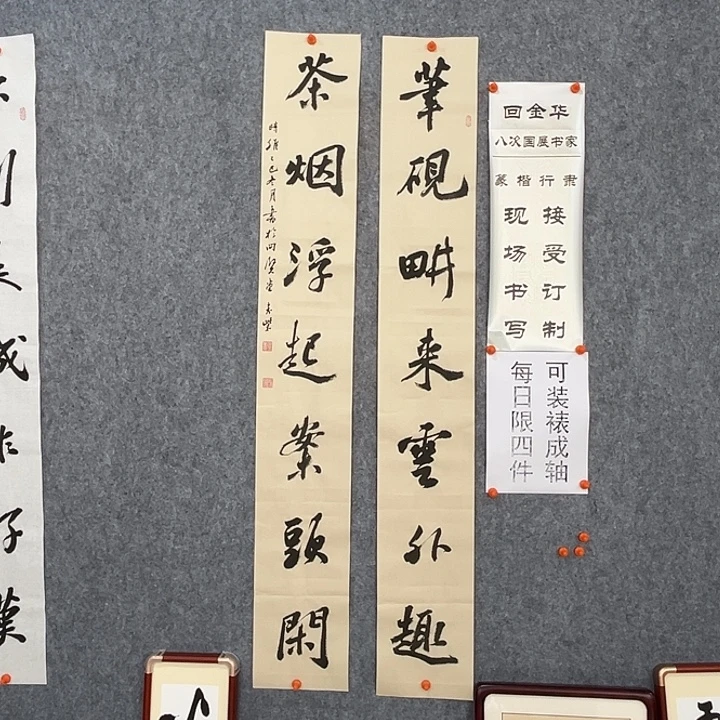 回金华
八次国展书家
篆楷行隶
接受订制
现场书写
可装裱成轴
每日限四件
筆硯畊来雲外趣
茶烟浮起案頭閑
時維乙巳冬月書於四
漢